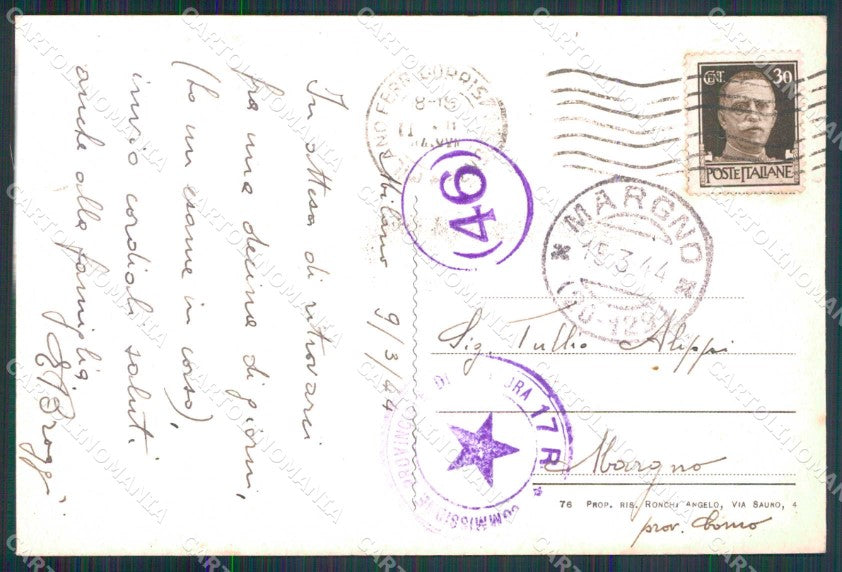 Milano 9/3/44
In attesa di ritrovarci
fra una decina di giorni,
(ho un esame in corso),
invio cordiali saluti
anche alla famiglia
EBroggi
8-9
(46)
CENT. 30
POSTE ITALIANE
* MARGNO *
15.3.44
Sig Tullio Aleppi
COMMISSIONE PROVINCIALE DI CENSURA 17R *
Margno
76 PROP. RIS. RONCHI ANGELO, VIA SAURO, 4
prov. Como
CARTOLINOMANIA